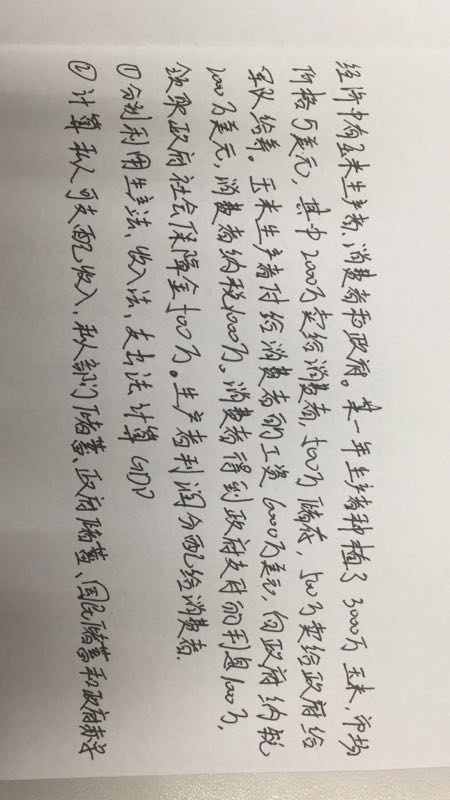 经济中有玉米生产者、消费者和政府。某一年生产者种植了3000万玉米,市场
价格5美元,其中2000万卖给消费者,500万储存,500万卖给政府给
军队给养。玉米生产者付给消费者的工资6000万美元,向政府纳税
2000万美元,消费者纳税1000万。消费者得到政府支付的利息1000万,
领取政府社会保障金500万。生产者利润分配给消费者.
①分别利用生产法、收入法、支出法计算GDP
②计算私人可支配收入、私人部门储蓄、政府储蓄、国民储蓄和政府赤字